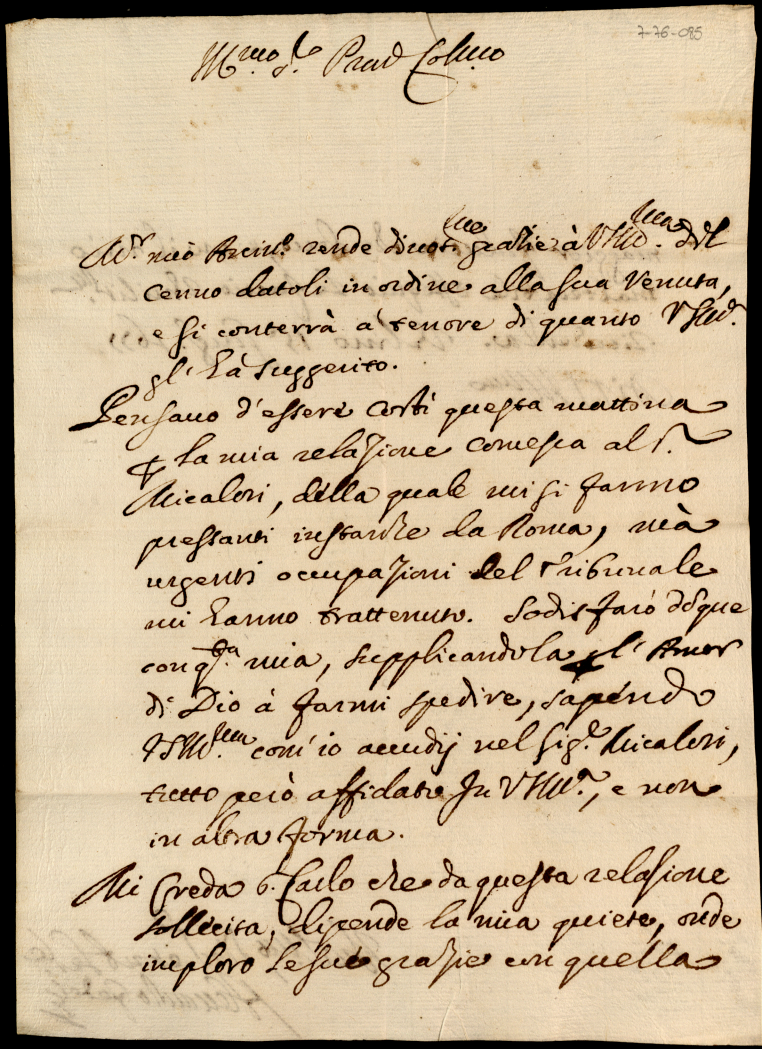 7-76-085
Ill.mo S.r Pron Col.mo
mio rende divot.me grazie à VS Ill.ma del
cenno datoli in ordine alla sua Venuta,
e si conterrà a' tenore di quanto VS Ill.
gl' hà suggerito.
Pensavo d'essere costì questa mattina
la mia relazione al S.r
Micalori, della quale mi si fanno
pressanti instanze da Roma, mà
urgenti occupazioni del Tribunale
mi hanno trattenuto. Sodisfarò dũque
con q.ta mia, supplicandola l' Amor
di Dio à farmi spedire, sapendo
VS Ill.ma com' io accudij nel Sig.r Micalori,
tutto però affidato In VS Ill.a, e non
in altra forma.
Mi Creda che da questa relasione
sollecita, dipende la mia quiete, onde
imploro le sue grazie con quella